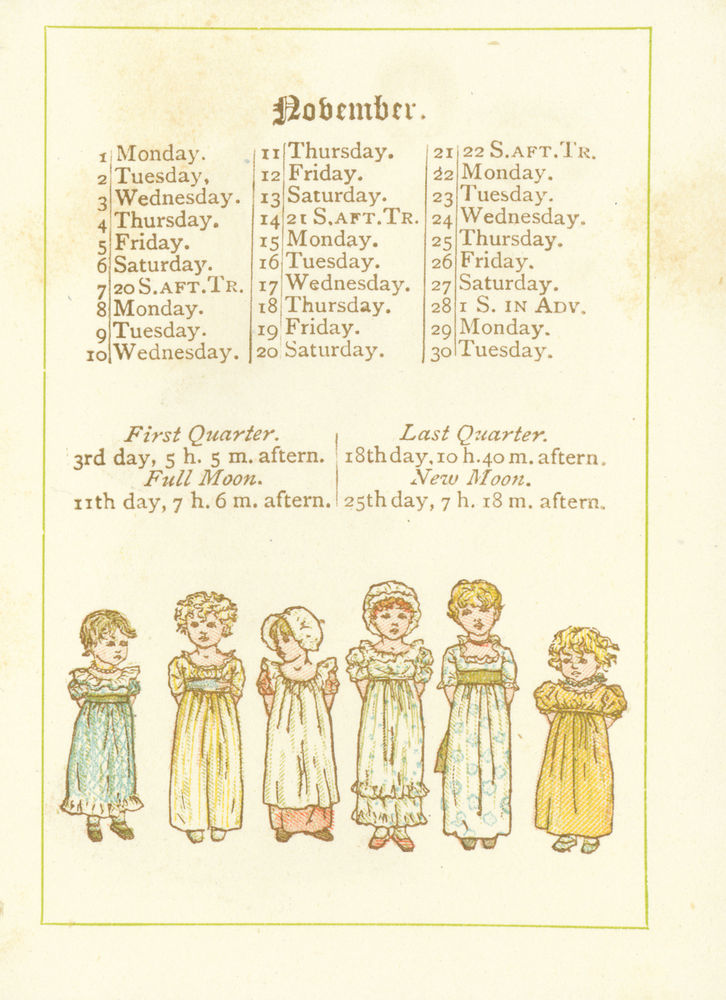 November.
1 Monday.
2 Tuesday,
3 Wednesday.
4 Thursday.
5 Friday.
6 Saturday.
7 20 S. AFT. TR.
8 Monday.
9 Tuesday.
10 Wednesday.
11 Thursday.
12 Friday.
13 Saturday.
14 21 S. AFT. TR.
15 Monday.
16 Tuesday.
17 Wednesday.
18 Thursday.
19 Friday.
20 Saturday.
21 22 S. AFT. TR.
22 Monday.
23 Tuesday.
24 Wednesday.
25 Thursday.
26 Friday.
27 Saturday.
28 1 S. IN ADV.
29 Monday.
30 Tuesday.
First Quarter.
3rd day, 5 h. 5 m. aftern.
Full Moon.
11th day, 7 h. 6 m. aftern.
Last Quarter.
18th day, 10 h. 40 m. aftern.
New Moon.
25th day, 7 h. 18 m. aftern.